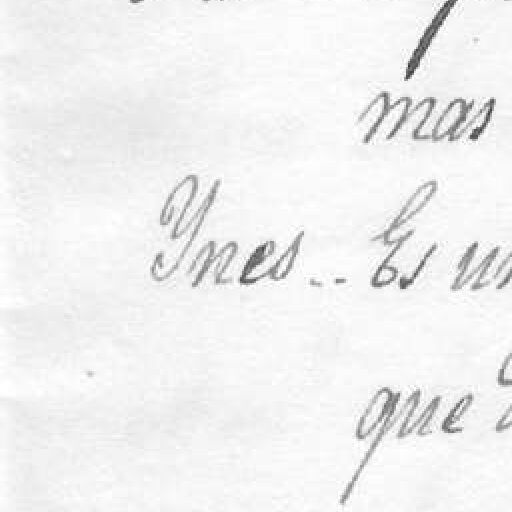 mas
Ynes.. Es un
que